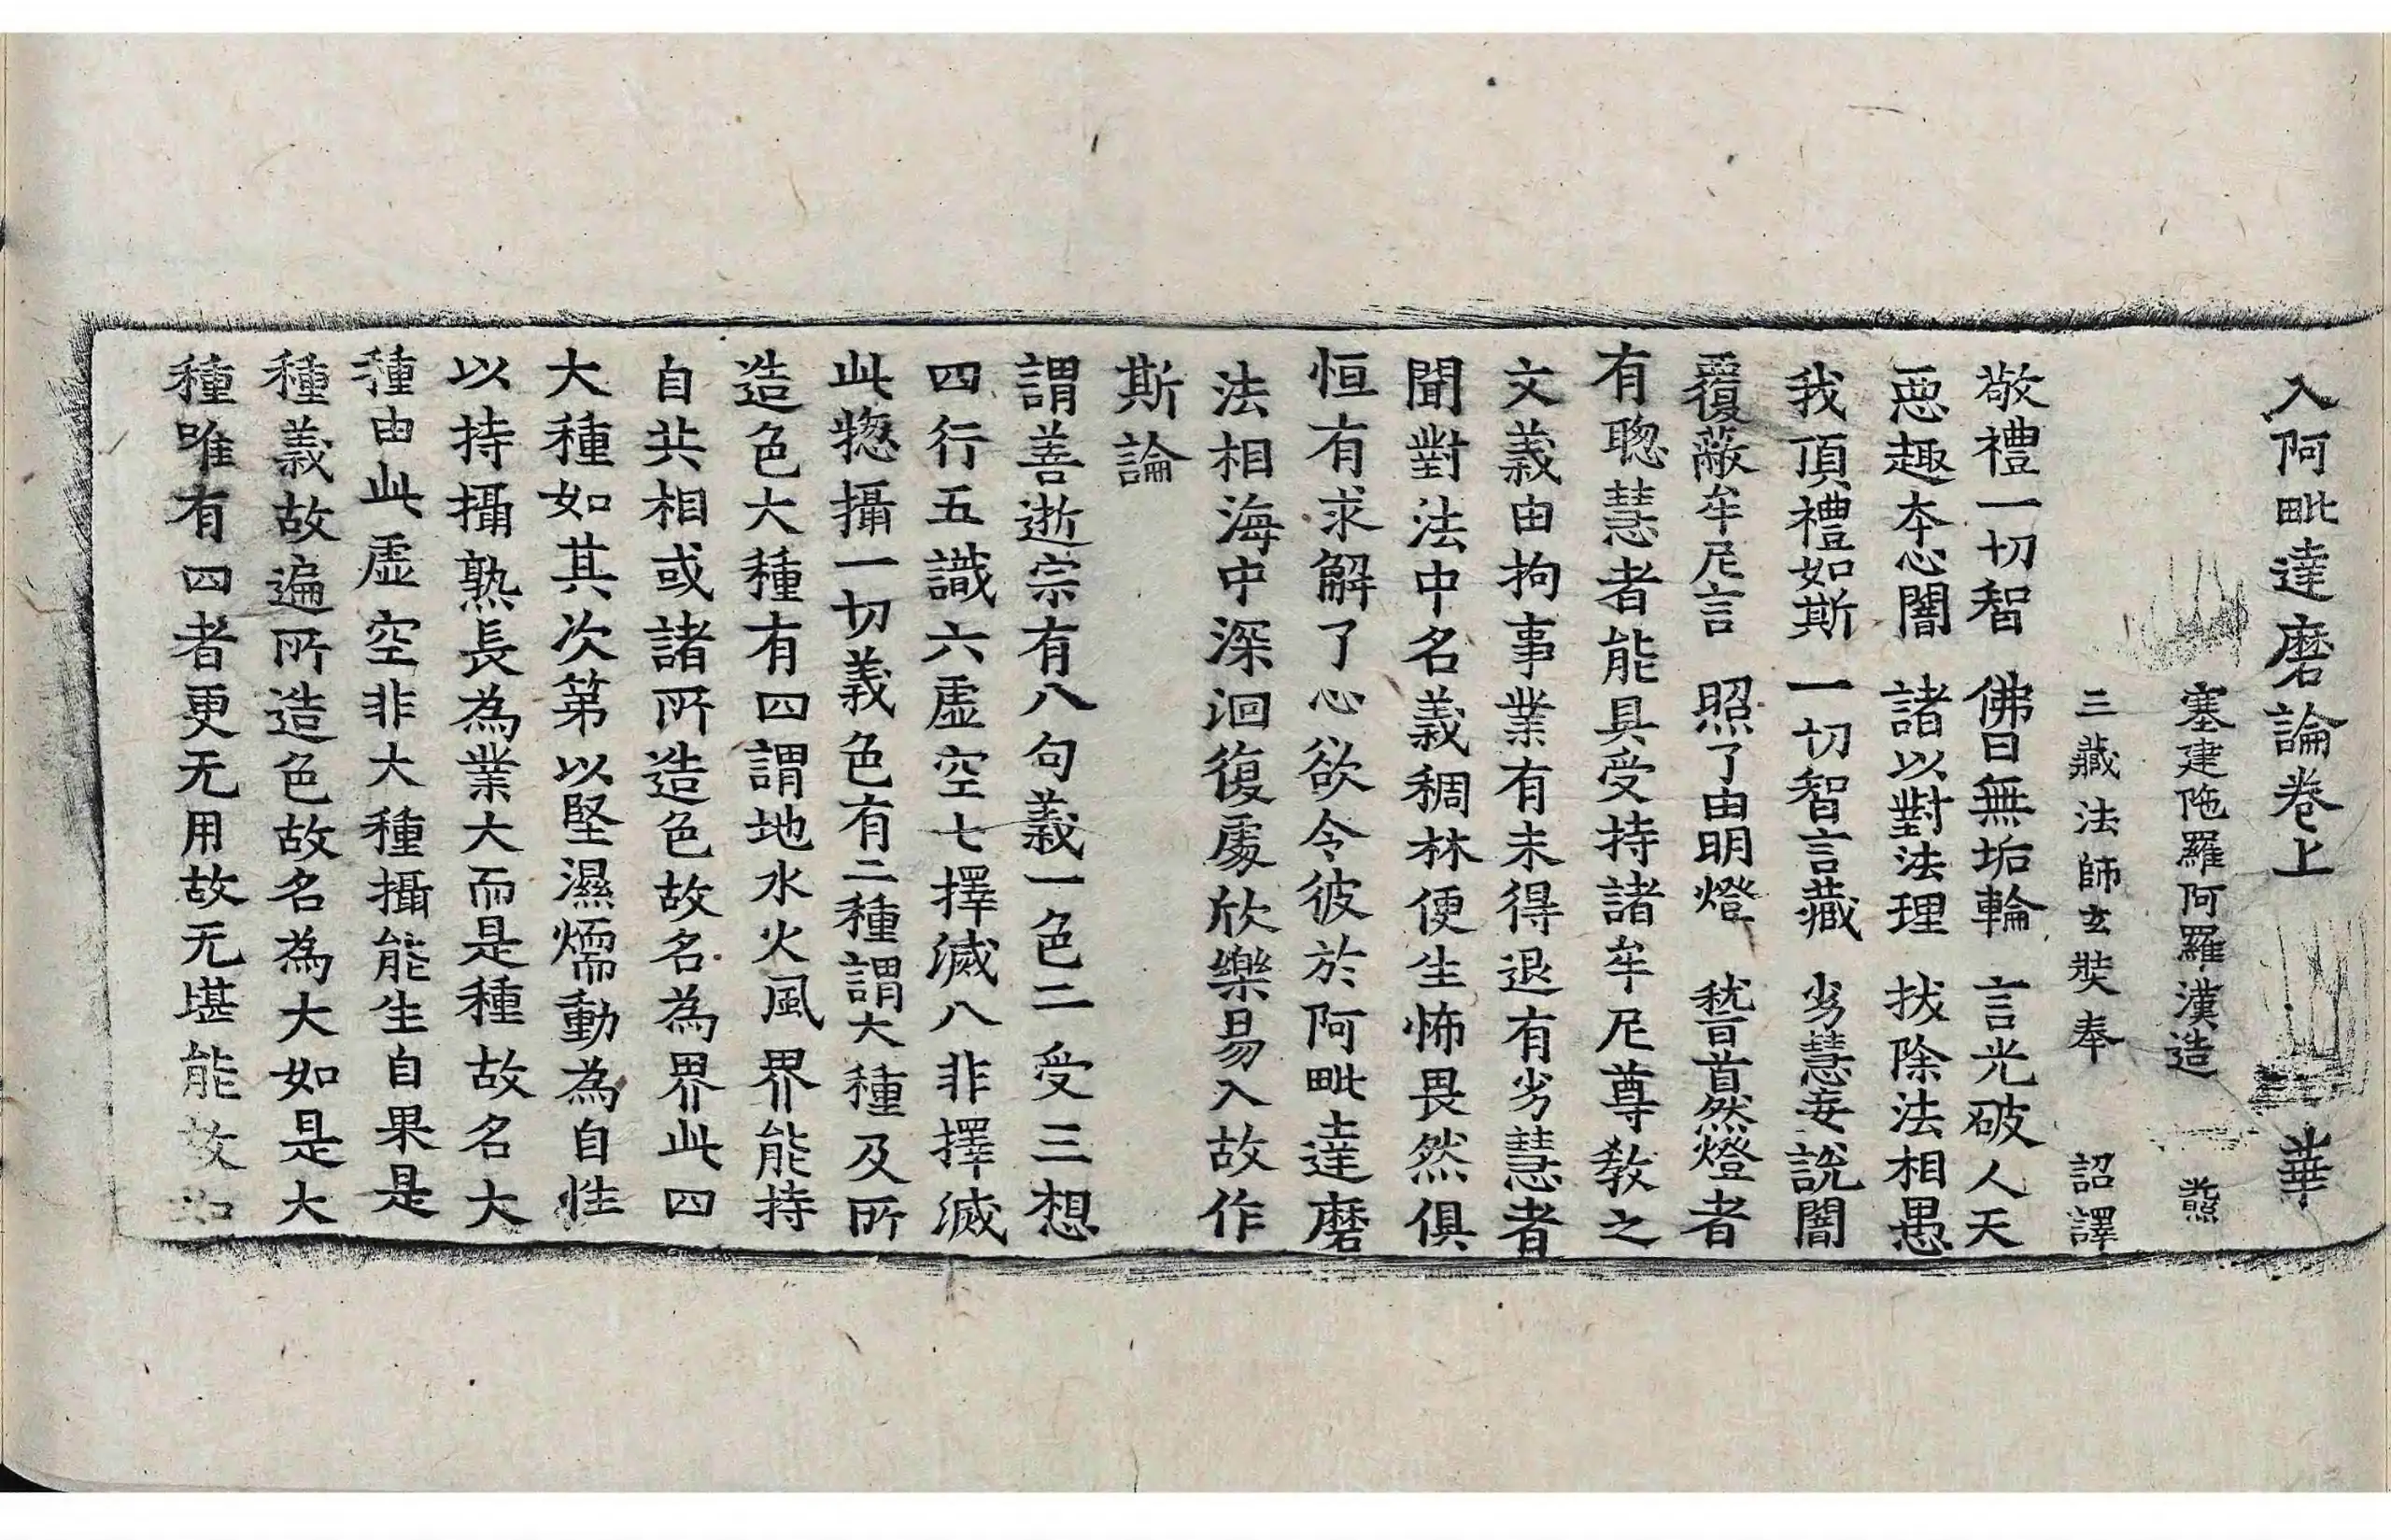 入阿毗達磨論卷上 華
塞建陁羅阿羅漢造
三藏法師玄奘奉 詔譯
敬禮一切智 佛日無垢輪 言光破人天
惡趣本心闇 諸以對法理 拔除法相愚
我頂禮如斯 一切智言藏 劣慧妄說闇
覆蔽牟尼言 照了由明燈 稽首然燈者
有聦慧者能具受持諸牟尼尊教之
文義由拘事業有未得退有劣慧者
聞對法中名義稠林便生怖畏然俱
恒有求解了心欲令彼於阿毗達磨
法相海中深洄復處欣樂易入故作
斯論
謂善逝宗有八句義一色二受三想
四行五識六虛空七擇滅八非擇滅
此惣攝一切義色有二種謂大種及所
造色大種有四謂地水火風界能持
自共相或諸所造色故名為界此四
大種如其次第以堅濕煗動為自性
以持攝熟長為業大而是種故名大
種由此虛空非大種攝能生自果是
種義故遍所造色故名為大如是大
種唯有四者更无用故无堪能故如